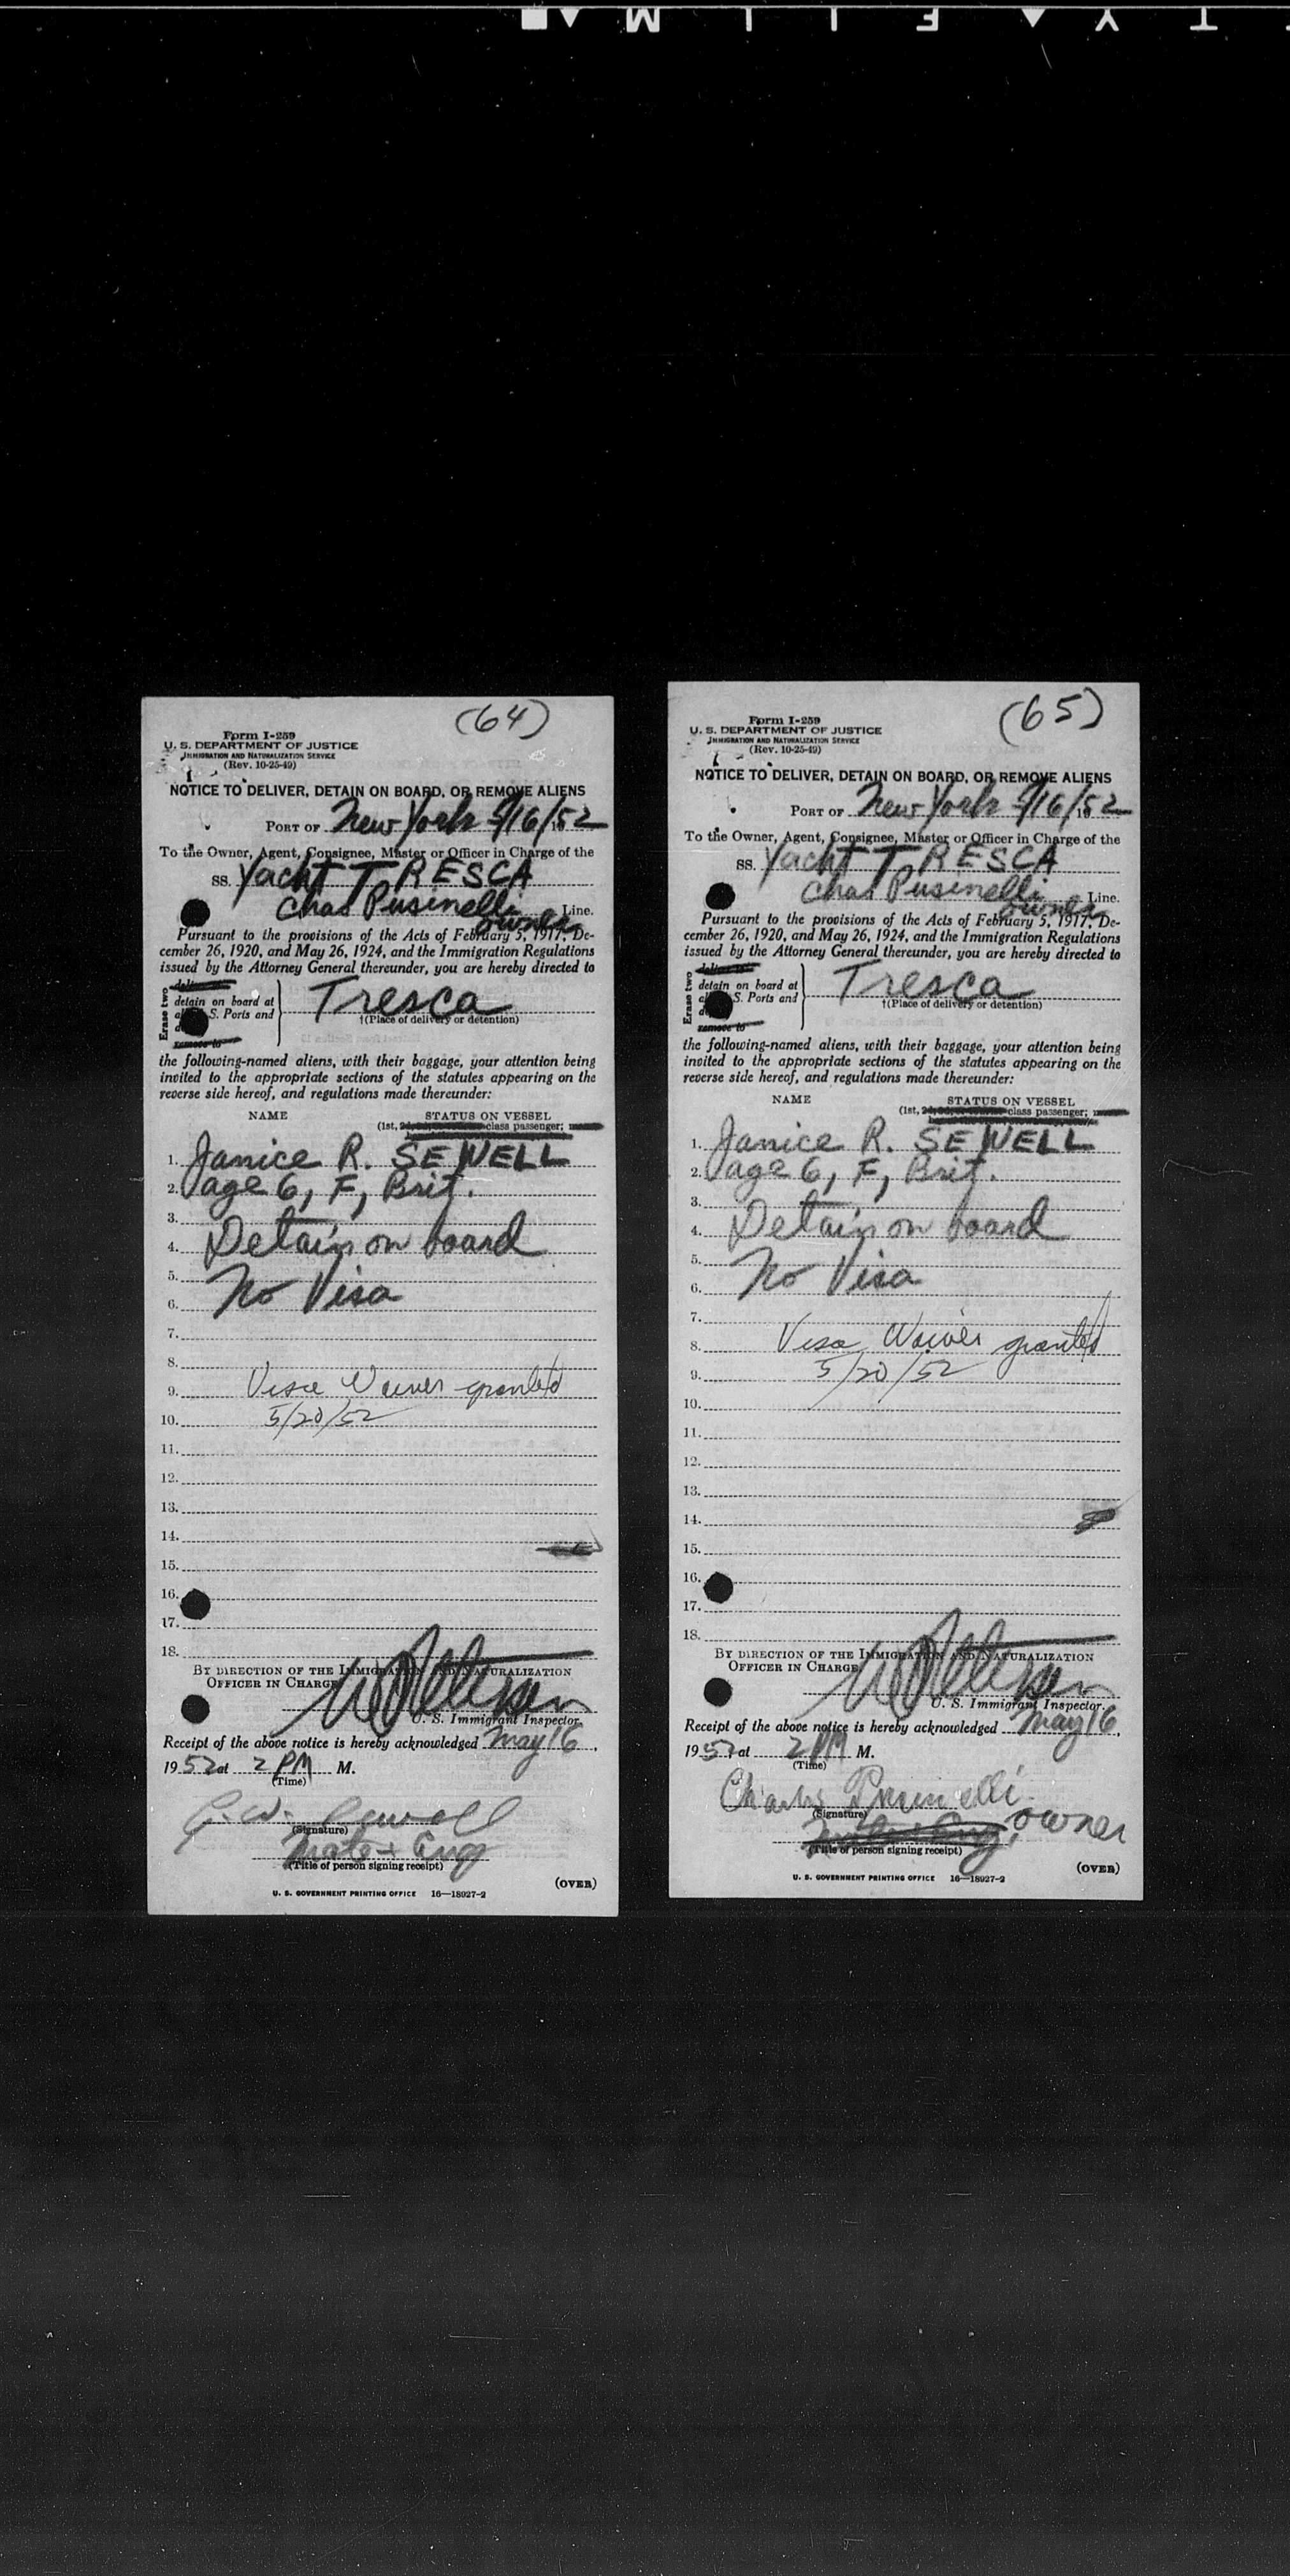 (64)
Form I-259
U. S. DEPARTMENT OF JUSTICE
IMMIGRATION AND NATURALIZATION SERVICE
(Rev. 10-25-49)
NOTICE TO DELIVER, DETAIN ON BOARD, OR REMOVE ALIENS
PORT OF New York 5/16/52
To the Owner, Agent, Consignee, Master or Officer in Charge of the
SS. Yacht TRESCA
Chas Pusinelli Line.
owner
Pursuant to the provisions of the Acts of February 5, 1917, De-
cember 26, 1920, and May 26, 1924, and the Immigration Regulations
issued by the Attorney General thereunder, you are hereby directed to
Erase two
detain on board at
S. Ports and
Tresca
†(Place of delivery or detention)
remove to
the following-named aliens, with their baggage, your attention being
invited to the appropriate sections of the statutes appearing on the
reverse side hereof, and regulations made thereunder:
NAME STATUS ON VESSEL
(1st, class passenger;
1. Janice R. SEWELL
2. age 6, F, Brit.
3.
4. Detain on board
5.
6. No Visa
7.
8.
9. Visa Waiver granted
10. 5/20/52
11.
12.
13.
14.
15.
16.
17.
18.
BY DIRECTION OF THE IMMIGRATION AND NATURALIZATION
OFFICER IN CHARGE
U. S. Immigrant Inspector.
Receipt of the above notice is hereby acknowledged May 16,
1952 at 2 PM M.
(Time)
Sewell
(Signature)
Mate + Eng
(Title of person signing receipt)
(OVER)
U. S. GOVERNMENT PRINTING OFFICE 16—18927-2
(65)
Form I-259
U. S. DEPARTMENT OF JUSTICE
IMMIGRATION AND NATURALIZATION SERVICE
(Rev. 10-25-49)
NOTICE TO DELIVER, DETAIN ON BOARD, OR REMOVE ALIENS
PORT OF New York 5/16/52
To the Owner, Agent, Consignee, Master or Officer in Charge of the
SS. Yacht TRESCA
Chas Pusinelli Line.
owner
Pursuant to the provisions of the Acts of February 5, 1917, De-
cember 26, 1920, and May 26, 1924, and the Immigration Regulations
issued by the Attorney General thereunder, you are hereby directed to
Erase two
deliver to
detain on board at
S. Ports and
Tresca
†(Place of delivery or detention)
remove to
the following-named aliens, with their baggage, your attention being
invited to the appropriate sections of the statutes appearing on the
reverse side hereof, and regulations made thereunder:
NAME STATUS ON VESSEL
(1st, class passenger;
1. Janice R. SEWELL
2. age 6, F, Brit.
3.
4. Detain on board
5.
6. No Visa
7.
8. Visa Waiver granted
9. 5/20/52
10.
11.
12.
13.
14.
15.
16.
17.
18.
BY DIRECTION OF THE IMMIGRATION AND NATURALIZATION
OFFICER IN CHARGE
U. S. Immigrant Inspector.
Receipt of the above notice is hereby acknowledged May 16,
1952 at 2 PM M.
(Time)
Charles Pusinelli
(Signature)
Mate + Eng. owner
(Title of person signing receipt)
(OVER)
U. S. GOVERNMENT PRINTING OFFICE 16—18927-2